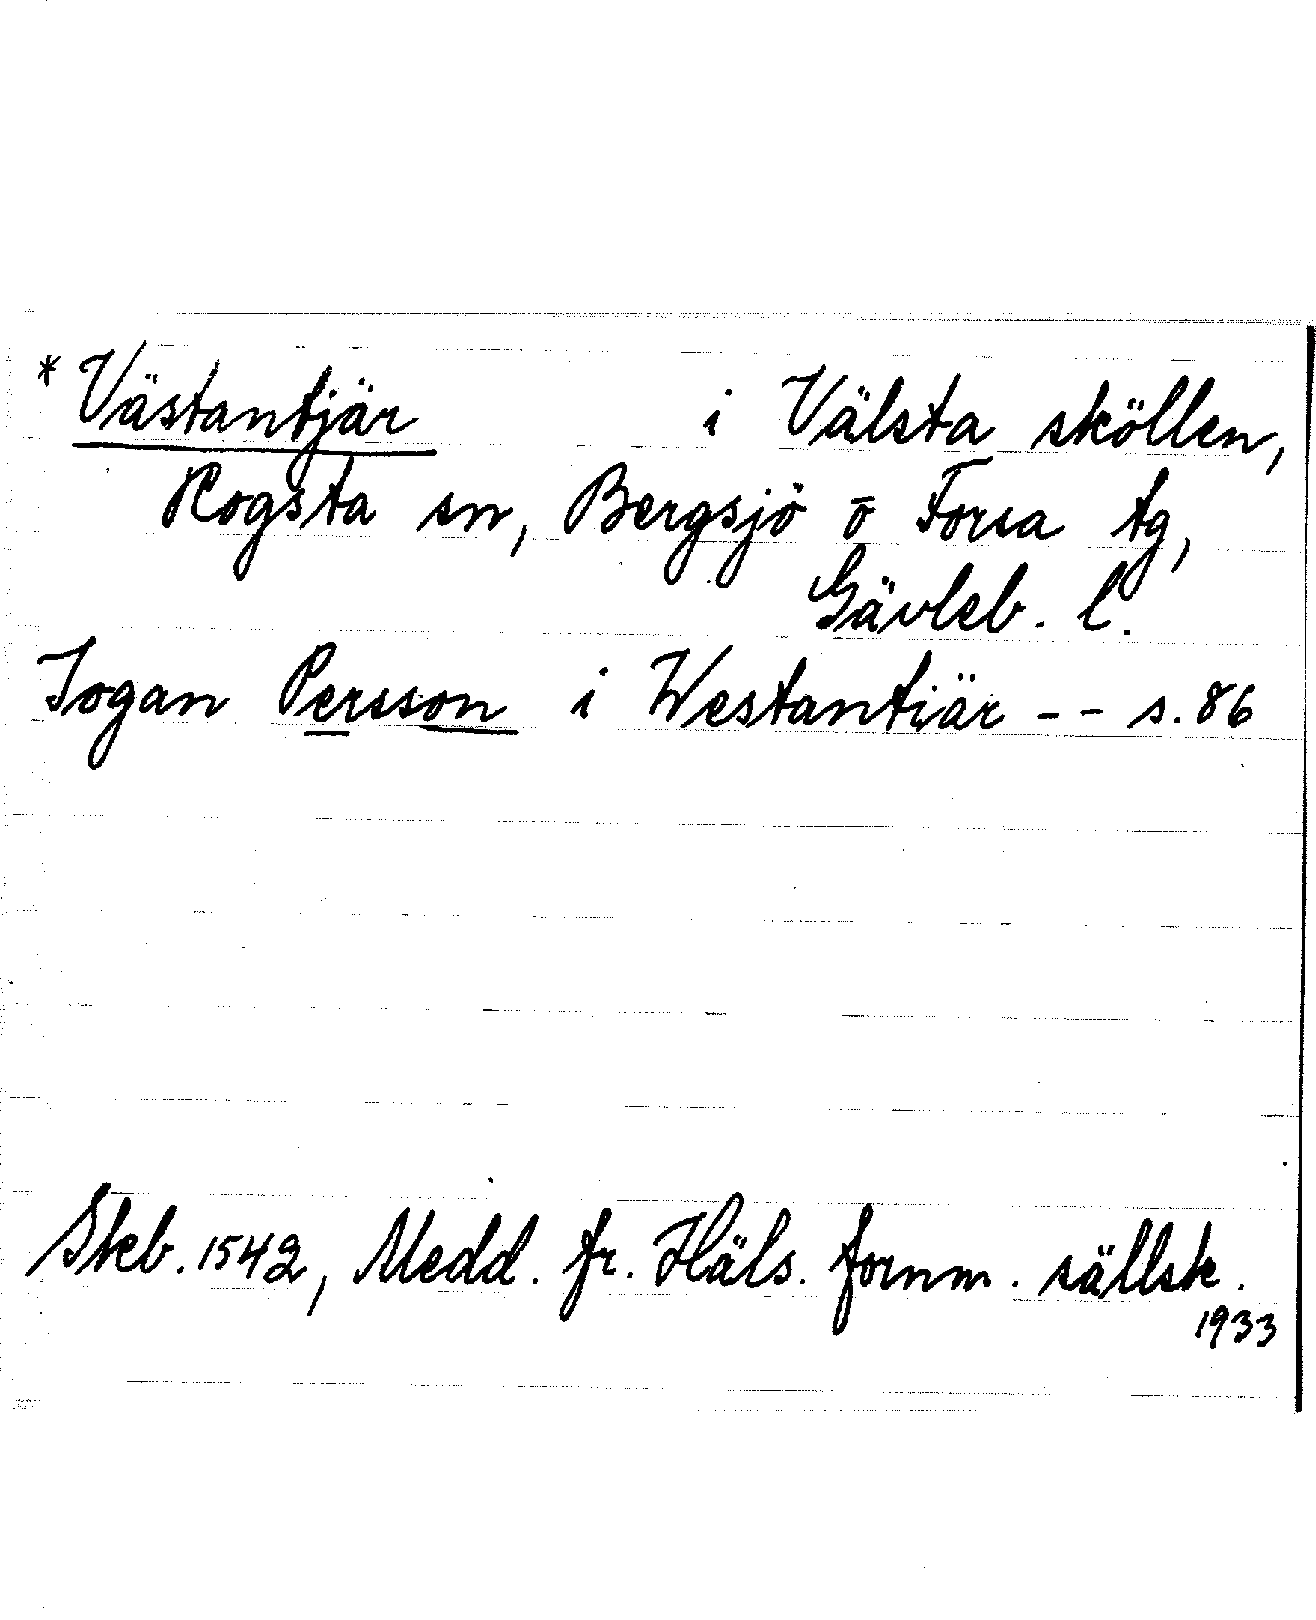 * Västantjär i Välsta sköllen,
Rogsta sn, Bergsjö o Forsa tg,
Gävleb. l.
Jogan Persson i Westantiär - - s. 86
Skeb. 1542, Medd. fr. Häls. fornm. sällsk.
1933